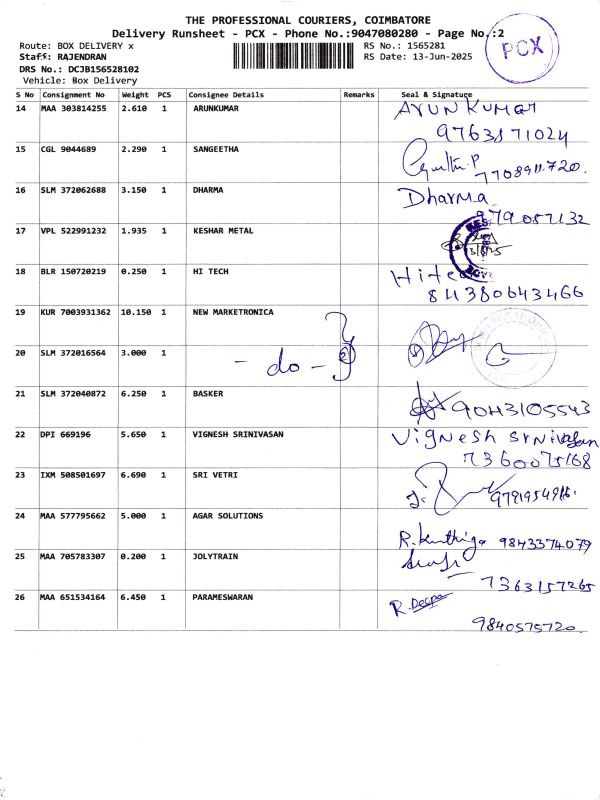 THE PROFESSIONAL COURIERS, COIMBATORE
Delivery Runsheet - PCX - Phone No.:9047080280 - Page No.:2
PCX
Route: BOX DELIVERY x
RS No.: 1565281
Staff: RAJENDRAN
RS Date: 13-Jun-2025
DRS No.: DCJB156528102
Vehicle: Box Delivery
S No Consignment No Weight PCS Consignee Details Remarks Seal & Signature
14 MAA 303814255 2.610 1 ARUNKUMAR ARUN KUMAR
9763871024
15 CGL 9044689 2.290 1 SANGEETHA
7708911720.
16 SLM 372062688 3.150 1 DHARMA Dharma
979 057132
17 VPL 522991232 1.935 1 KESHAR METAL
18 BLR 150720219 0.250 1 HI TECH Hitec
84380643466
19 KUR 7003931362 10.150 1 NEW MARKETRONICA
20 SLM 372016564 3.000 1 - do -
21 SLM 372040872 6.250 1 BASKER 9043105543
22 DPI 669196 5.650 1 VIGNESH SRINIVASAN Vignesh Srnivasan
7360075168
23 IXM 508501697 6.690 1 SRI VETRI
24 MAA 577795662 5.000 1 AGAR SOLUTIONS R. 9843374079
25 MAA 705783307 0.200 1 JOLYTRAIN
7363157265
26 MAA 651534164 6.450 1 PARAMESWARAN R. Deepa
9840575720